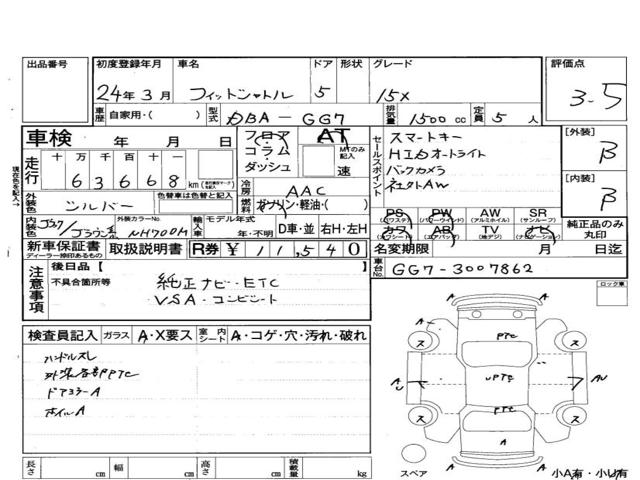 出品番号 初度登録年月 車名 ドア 形状 グレード 評価点
24年3月 フィットシャトル 5 15X 3-5
車歴 自家用・( ) 型式 DBA-GG7 排気量 1500cc 定員 5人
車検 年 月 日 フロア AT セールスポイント スマートキー [外装]
走行 十 万 千 百 十 一 コラム MTのみ記入 HIDオートライト B
6 3 6 6 8 km ダッシュ 速 バックカメラ [内装]
冷房 AAC 社外AW B
外装色 シルバー 色替車は色替と記入 燃料 ガソリン・軽油・( )
PS PW AW SR
(パワステ) (パワーウインド) (アルミホイル) (サンルーフ)
カワ AB TV ナビ 純正品のみ丸印
(エアバッグ) (地デジ) (ナビゲーション)
内装色 外装カラーNo. NH700M 輸入車 モデル年式 年・不明 D車・並 右H・左H
新車保証書 取扱説明書 R券 ¥11,540 名変期限 月 日迄
ディーラー捺印あるもの
注意事項 後日品【 】 車台No. GG7-3007862
不具合箇所等 純正ナビ・ETC
VSA・コンビシート
ロック車
検査員記入 ガラス A・X要ス 室内シート A・コゲ・穴・汚れ・破れ
ハンドルスレ
外装各部PPTC
ドアミラーA
ホイルA
A A
PTC
ス ス
A U UPTC A U
ス PTC ス
A
A A
スペア 小A有・小U有
長さ cm 幅 cm 高さ cm 積載量 kg